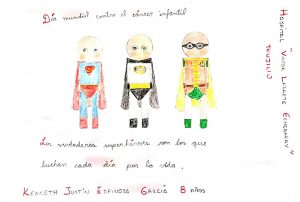 Día mundial contra el cáncer infantil
Los verdaderos superhéroes son los que
luchan cada día por la vida.
KENNETH JUSTIN ESPINOZA GARCÍA 8 AÑOS
HOSPITAL "VICTOR LAZARTE ECHEGARAY"
TRUJILLO